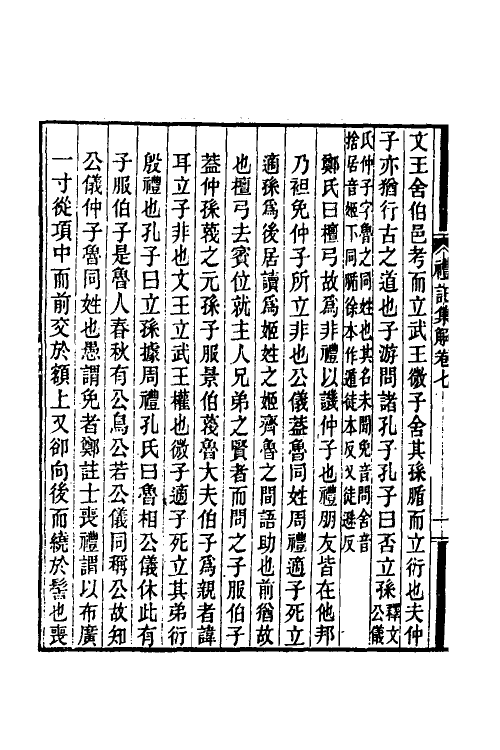 禮記集解卷七
文王舍伯邑考而立武王微子舍其孫腯而立衍也夫仲
子亦猶行古之道也子游問諸孔子孔子曰否立孫釋文公儀
氏仲子字魯之同姓也其名未聞免音問舍音
捨居音姬下同腯徐本作遁徒本反又徒遜反
鄭氏曰檀弓故爲非禮以譏仲子也禮朋友皆在他邦
乃袒免仲子所立非也公儀蓋魯同姓周禮適子死立
適孫爲後居讀爲姬姓之姬齊魯之間語助也前猶故
也檀弓去賓位就主人兄弟之賢者而問之子服伯子
蓋仲孫蔑之元孫子服景伯蔑魯大夫伯子爲親者諱
耳立子非也文王立武王權也微子適子死立其弟衍
殷禮也孔子曰立孫據周禮孔氏曰魯相公儀休此有
子服伯子是魯人春秋有公鳥公若公儀同稱公故知
公儀仲子魯同姓也愚謂免者鄭註士喪禮謂以布廣
一寸從項中而前交於額上又卻向後而繞於髻也喪